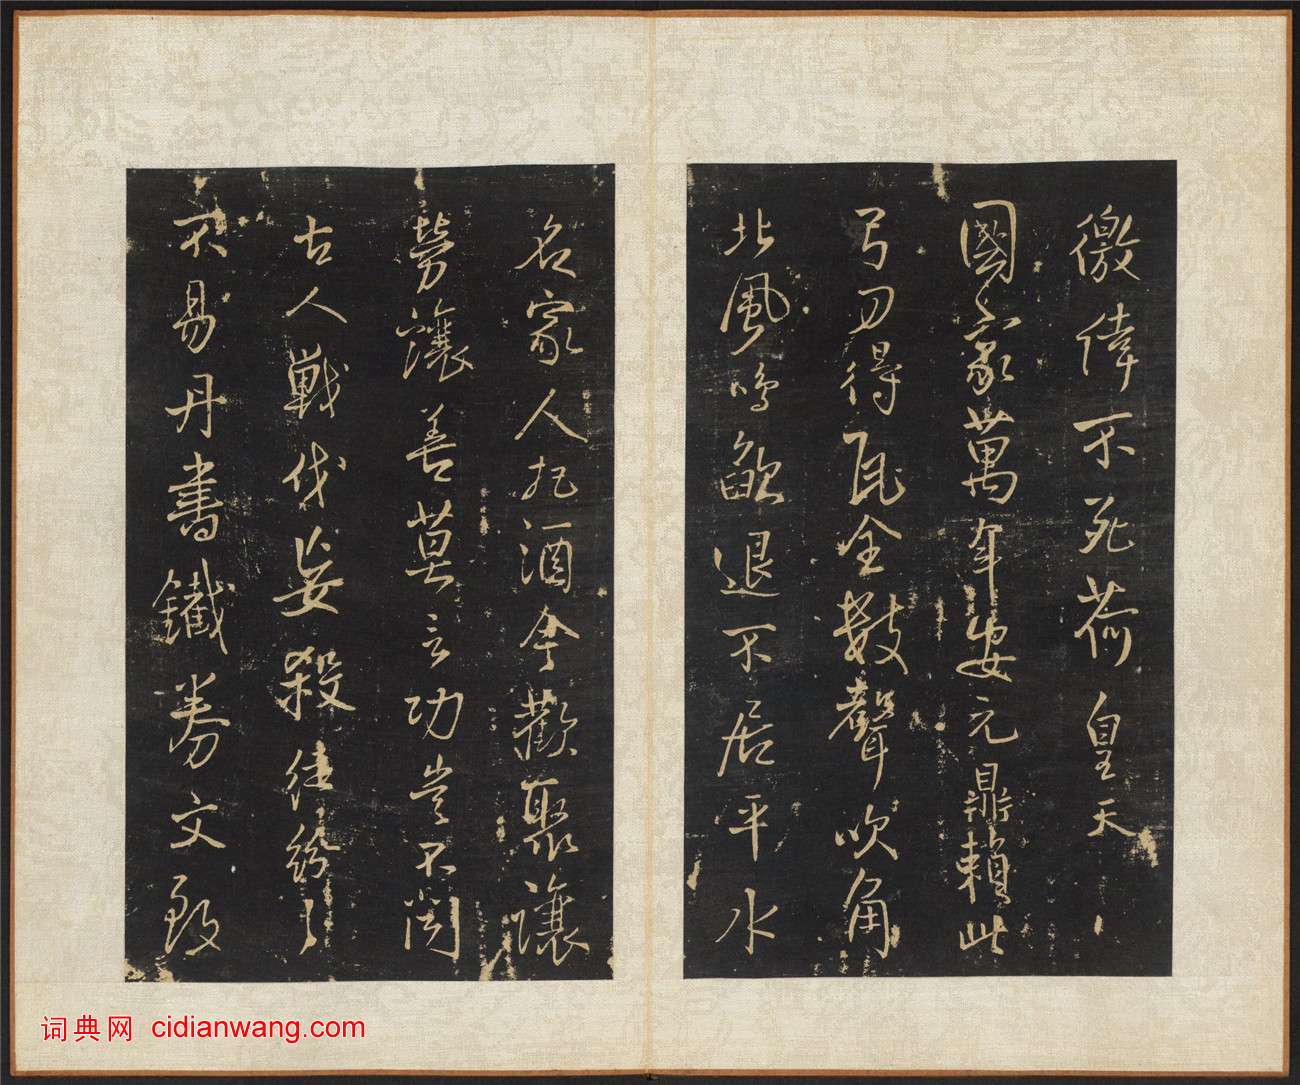 徼倖不死荷皇天〻
國家萬年安元鼎賴此
弓刀得瓦全數聲吹角
北風鳴飲退不居平水
名家人把酒會歡聚釀
勞釀善莫言功豈不聞
古人戰伐妄殺徒紛〻
不易丹書鐵券文致
词典网 cidianwang.com